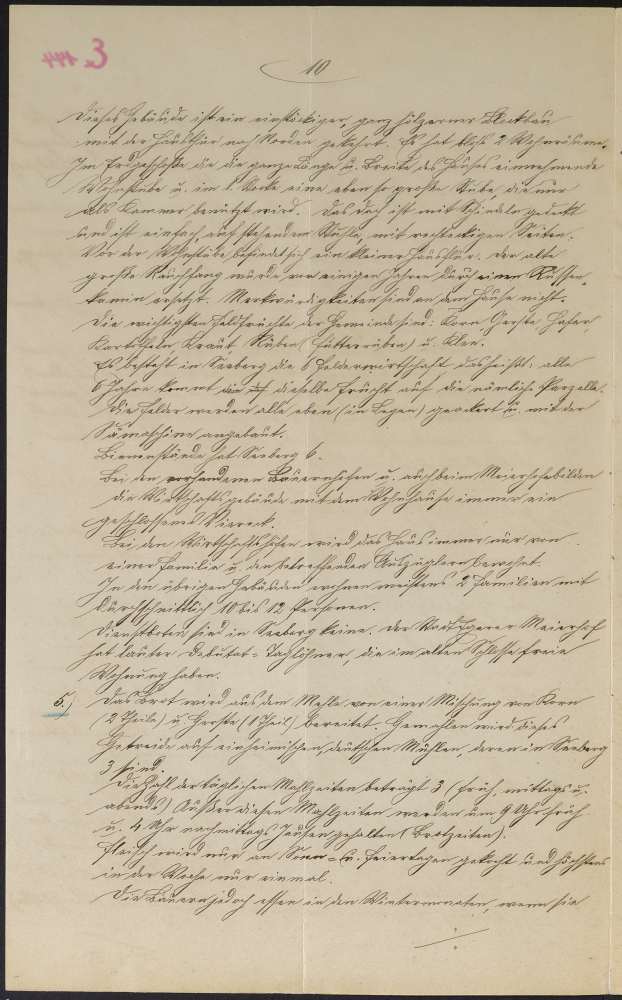 E 144
10
Dieses Gebäude ist ein einstöckiger, ganz hölzerner Blockbau
mit der Hausthür nach Norden gekehrt. Es hat bloß 2 Wohnräume.
Im Erdgeschoße die die ganze Länge u. Breite des Hauses einnehmende
Wohnstube u. im 1. Stocke eine eben so große Stube, die nur
als Kammer benützt wird. Das Dach ist mit Schindeln gedeckt
und ist einfach auf stehendem Stuhle, mit rechteckigen Seiten.
Vor der Wohnstube befindet sich ein kleiner Hausflur. Der alte
große Rauchfang wurde vor einigen Jahren durch einen Russen-
kamin ersetzt. Merkwürdigkeiten sind an dem Hause nicht.
Die wichtigsten Feldfrüchte der Gemeinde sind: Korn, Gerste, Hafer,
Kartoffeln, Kraut, Rüben (Futterrüben) u. Klee.
Es besteht in Seeberg die 6 Felderwirtschaft, das heißt: alle
6 Jahre kommt dieselbe Frucht auf die nämliche Parzelle.
Die Felder werden alle eben (in Legen) geackert u. mit der
Sämaschine angebaut.
Bienenstände hat Seeberg 6.
Bei den vorhandenen Bauernhöfen u. auch beim Meierhofe bilden
die Wirtschaftsgebäude mit dem Wohnhause immer ein
geschlossenes Viereck.
Bei den Wirtschaftshöfen wird das Haus immer nur von
einer Familie u. den betreffenden Auszüglern bewohnt.
In den übrigen Gebäuden wohnen meistens 2 Familien mit
durchschnittlich 10 bis 12 Personen.
Dienstboten sind in Seeberg keine. Der Stadt Egerer Meierhof
hat lauter Deputat-Taglöhner, die im alten Schlosse freie
Wohnung haben.
5.) Das Brot wird aus dem Mehle von einer Mischung von Korn
(2 Theile) u. Gerste (1 Theil) bereitet. Gemahlen wird dieses
Getreide auf einheimischen, deutschen Mühlen, deren in Seeberg
3 sind.
Die Zahl der täglichen Mahlzeiten beträgt 3 (früh, mittags u.
abends) Außer diesen Mahlzeiten werden um 9 Uhr früh
u. 4 Uhr nachmittags Jausen gehalten (Brotzeiten).
Fleisch wird nur an Sonn- u. Feiertagen gekocht und höchstens
in der Woche nur einmal.
Die Bauern jedoch essen in den Wintermonaten, wenn sie